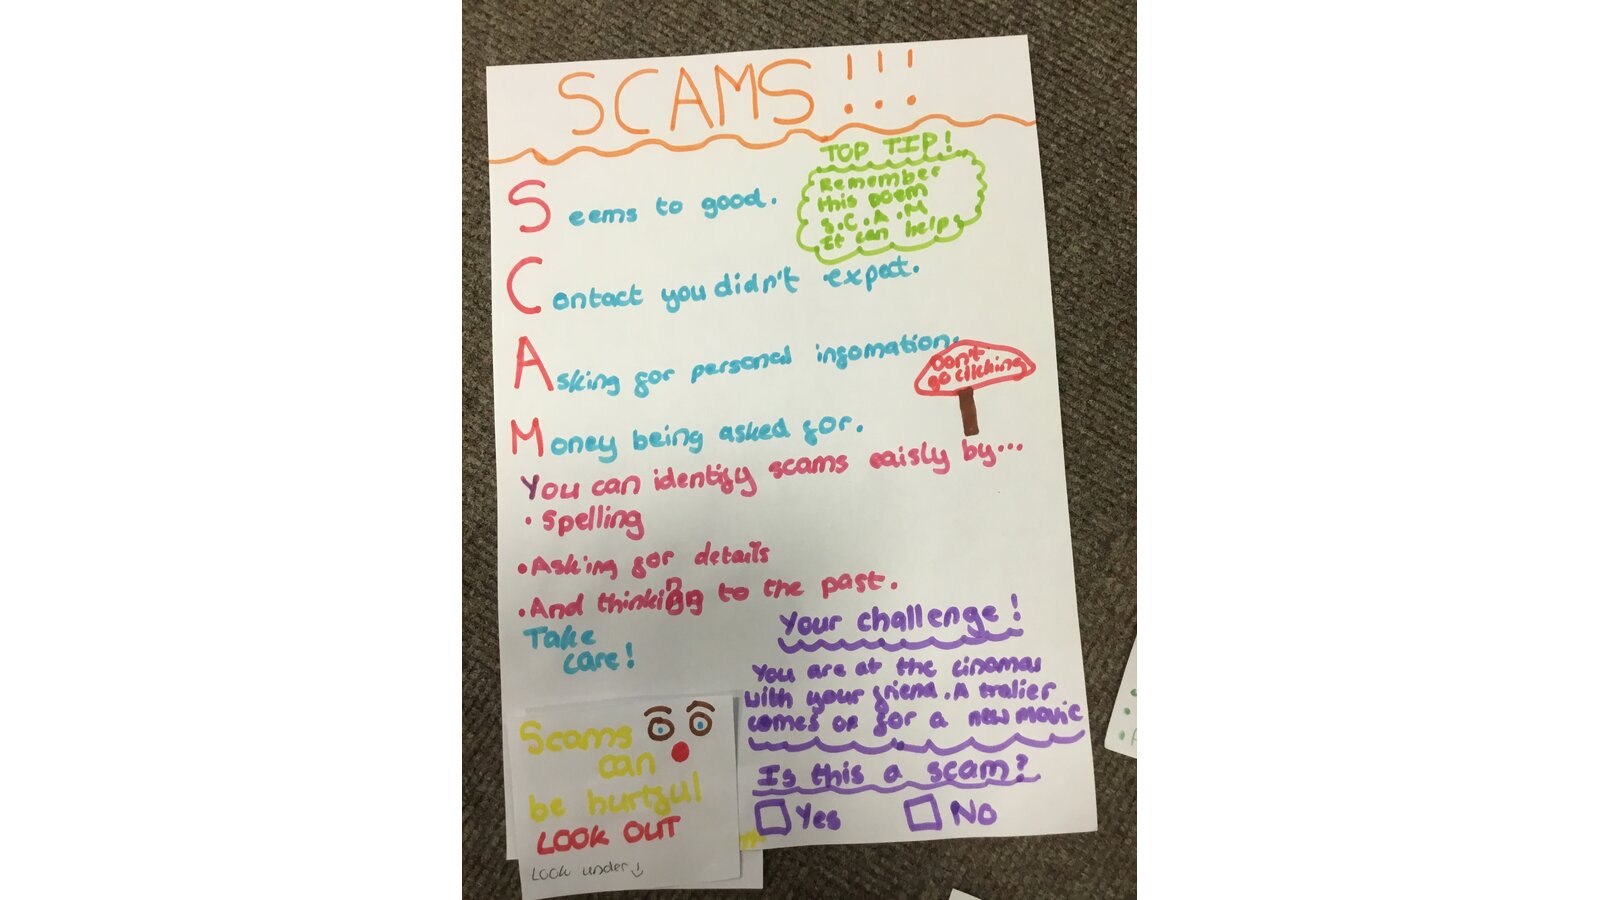 SCAMS!!!
TOP TIP!
Remember
this poem
S.C.A.M
It can help
Seems to good.
Contact you didn't expect.
Asking for personal infomation.
Don't
go clicking
Money being asked for.
You can identify scams eaisly by...
• Spelling
• Asking for details
• And thinking to the past.
Take
care!
Your challenge!
You are at the cinemas
with your friend. A tralier
comes on for a new movie
Is this a scam?
Yes
No
Scams
can
be hurtful
LOOK OUT
Look under